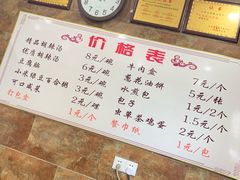 价格表
精品胡辣汤 8元/碗
优质胡辣汤 6元/碗
豆腐脑 3元/碗
小米绿豆百合粥 3元/碗
可口咸菜 2元/碟
打包盒 1元/个
牛肉盒 7元/个
葱花油饼 5元/张
水煎包 1元/个
包子 1.5元/个
虫草茶鸡蛋 2元/个
餐巾纸 1元/包